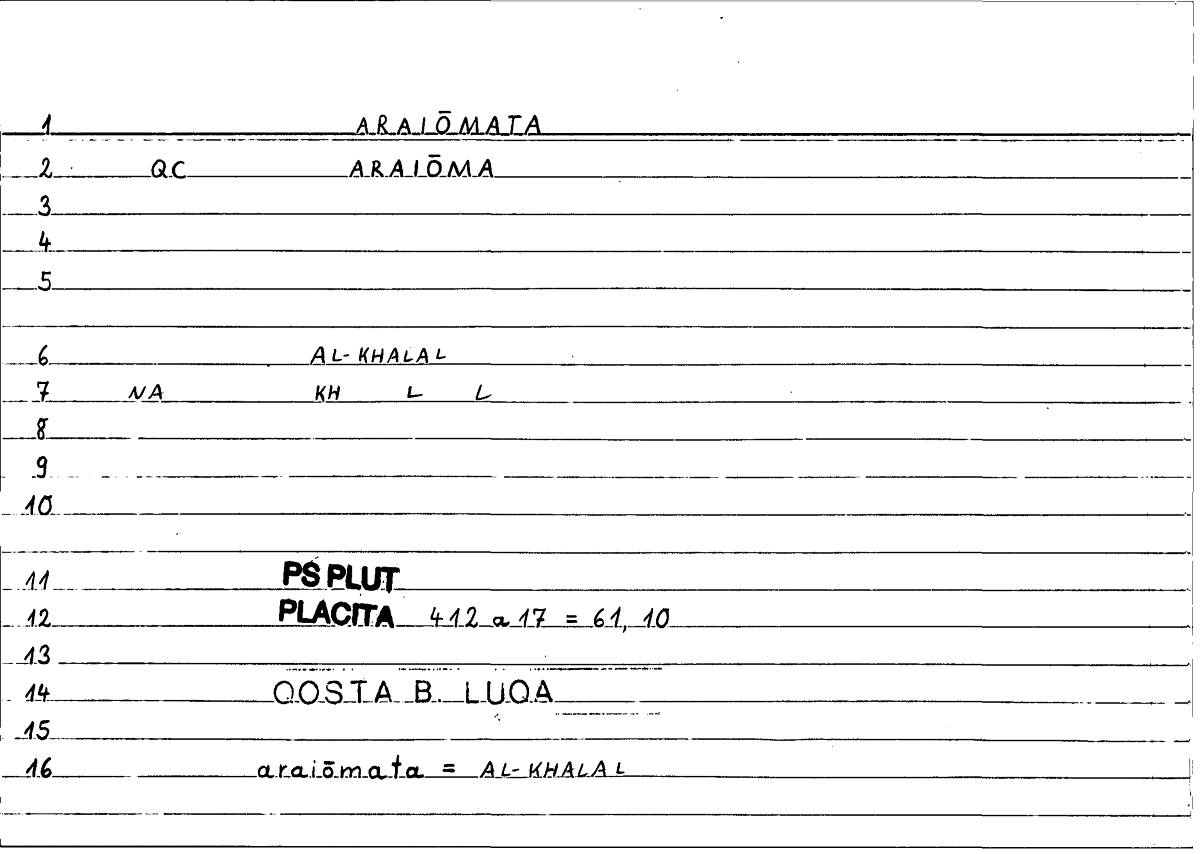 1 ARAIŌMATA
2 QC ARAIŌMA
3
4
5
6 AL-KHALAL
7 NA KH L L
8
9
10
11 PS PLUT
12 PLACITA 412 a 17 = 61, 10
13
14 QOSTA B. LUQA
15
16 araiōmata = AL-KHALAL